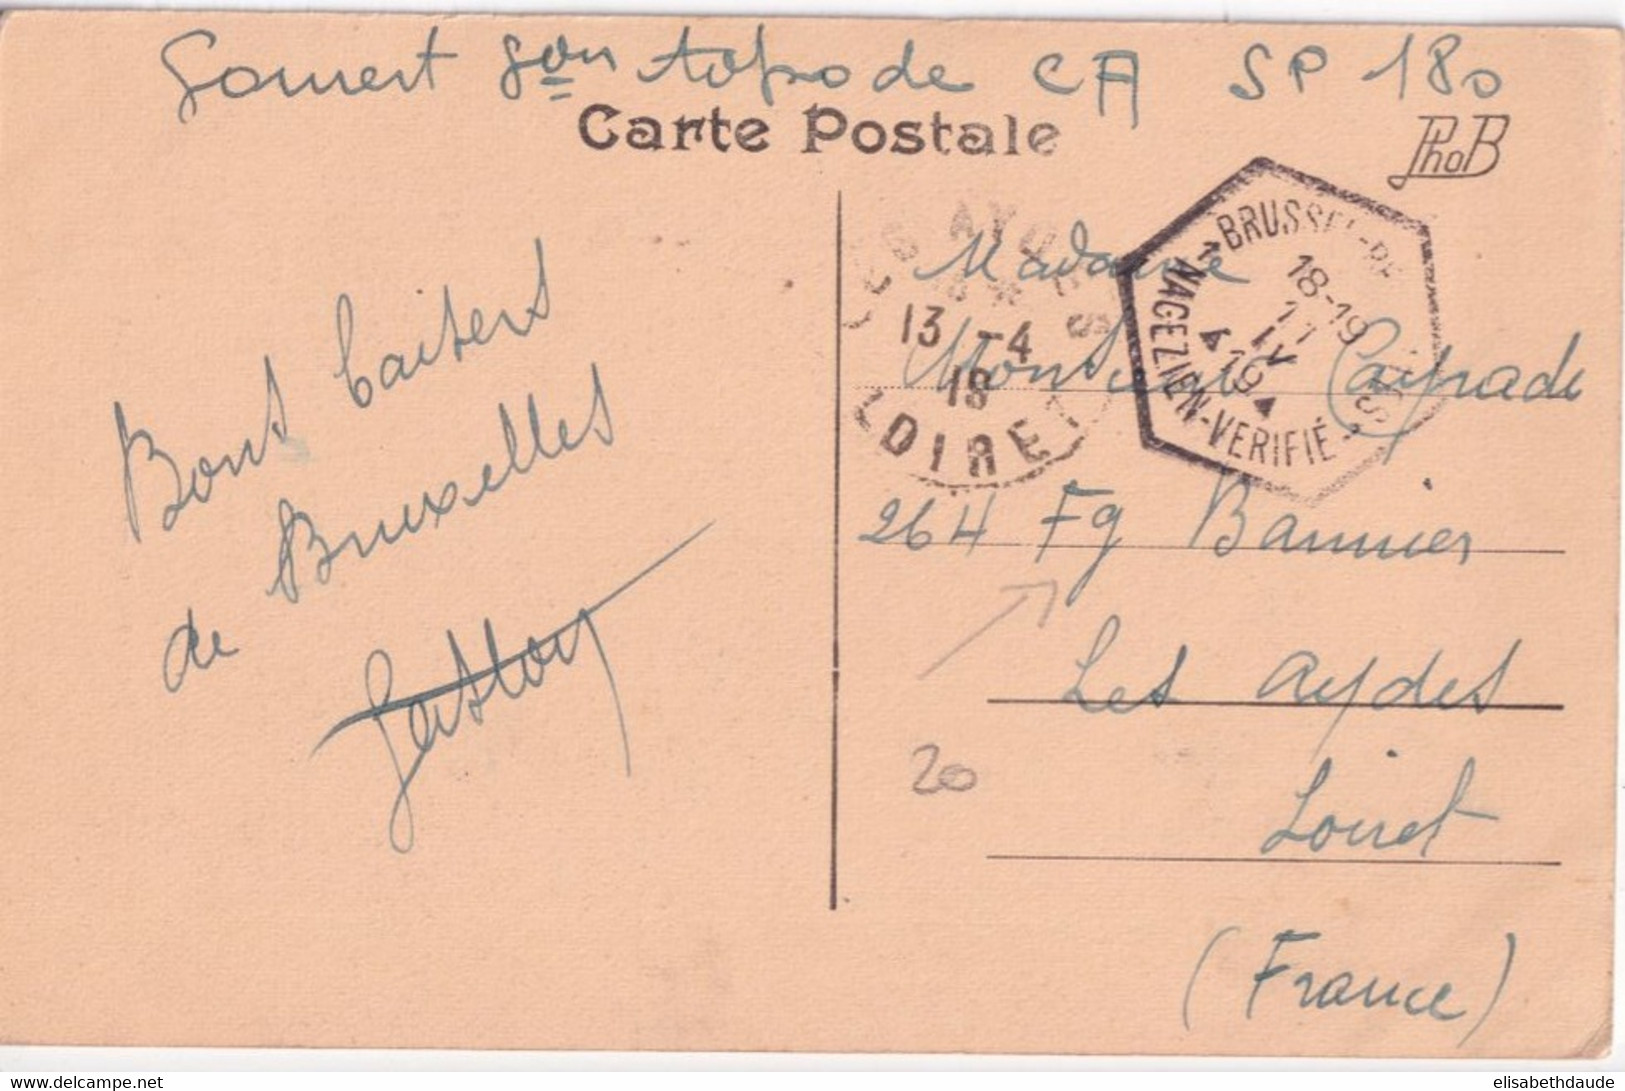 Gomert son Auto de CA SP 180
Carte Postale
PhoB
Bons baisers
de Bruxelles
Gaston
LES AYDES
13 -4
19
LOIRET
1 BRUSSEL-BRUXELLES 1
18-19
11
IV
19
NAGEZIEN-VERIFIÉ
Madame
264 Fg Bannier
Les Aydes
Loiret
(France)
20
© delcampe.net
elisabethdaude